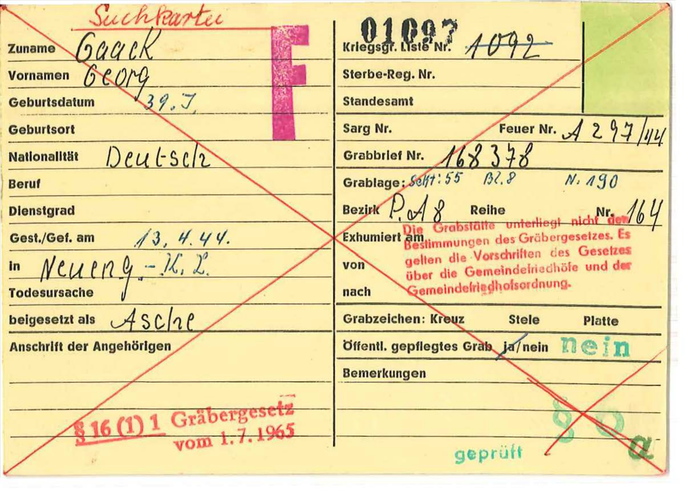 Suchkartei
Zuname Gaack
Vornamen Georg
Geburtsdatum 39. J.
Geburtsort
Nationalität Deutsch
Beruf
Dienstgrad
Gest./Gef. am 13. 4. 44.
in Neueng. - K. L.
Todesursache
beigesetzt als Asche
Anschrift der Angehörigen
§ 16 (1) 1 Gräbergesetz
vom 1. 7. 1965
F
01097
Kriegsgr. Liste Nr. 1092
Sterbe-Reg. Nr.
Standesamt
Sarg Nr. Feuer Nr. A 297/44
Grabbrief Nr. 168378
Grablage: 55 Bl. 8 N. 190
Bezirk P.A 8 Reihe Nr. 164
Exhumiert am
von
nach
Die Grabstätte unterliegt nicht den
Bestimmungen des Gräbergesetzes. Es
gelten die Vorschriften des Gesetzes
über die Gemeindefriedhöfe und der
Gemeindefriedhofsordnung.
Grabzeichen: Kreuz Stele Platte
Öffentl. gepflegtes Grab ja/nein nein
Bemerkungen
geprüft
§ 9 a